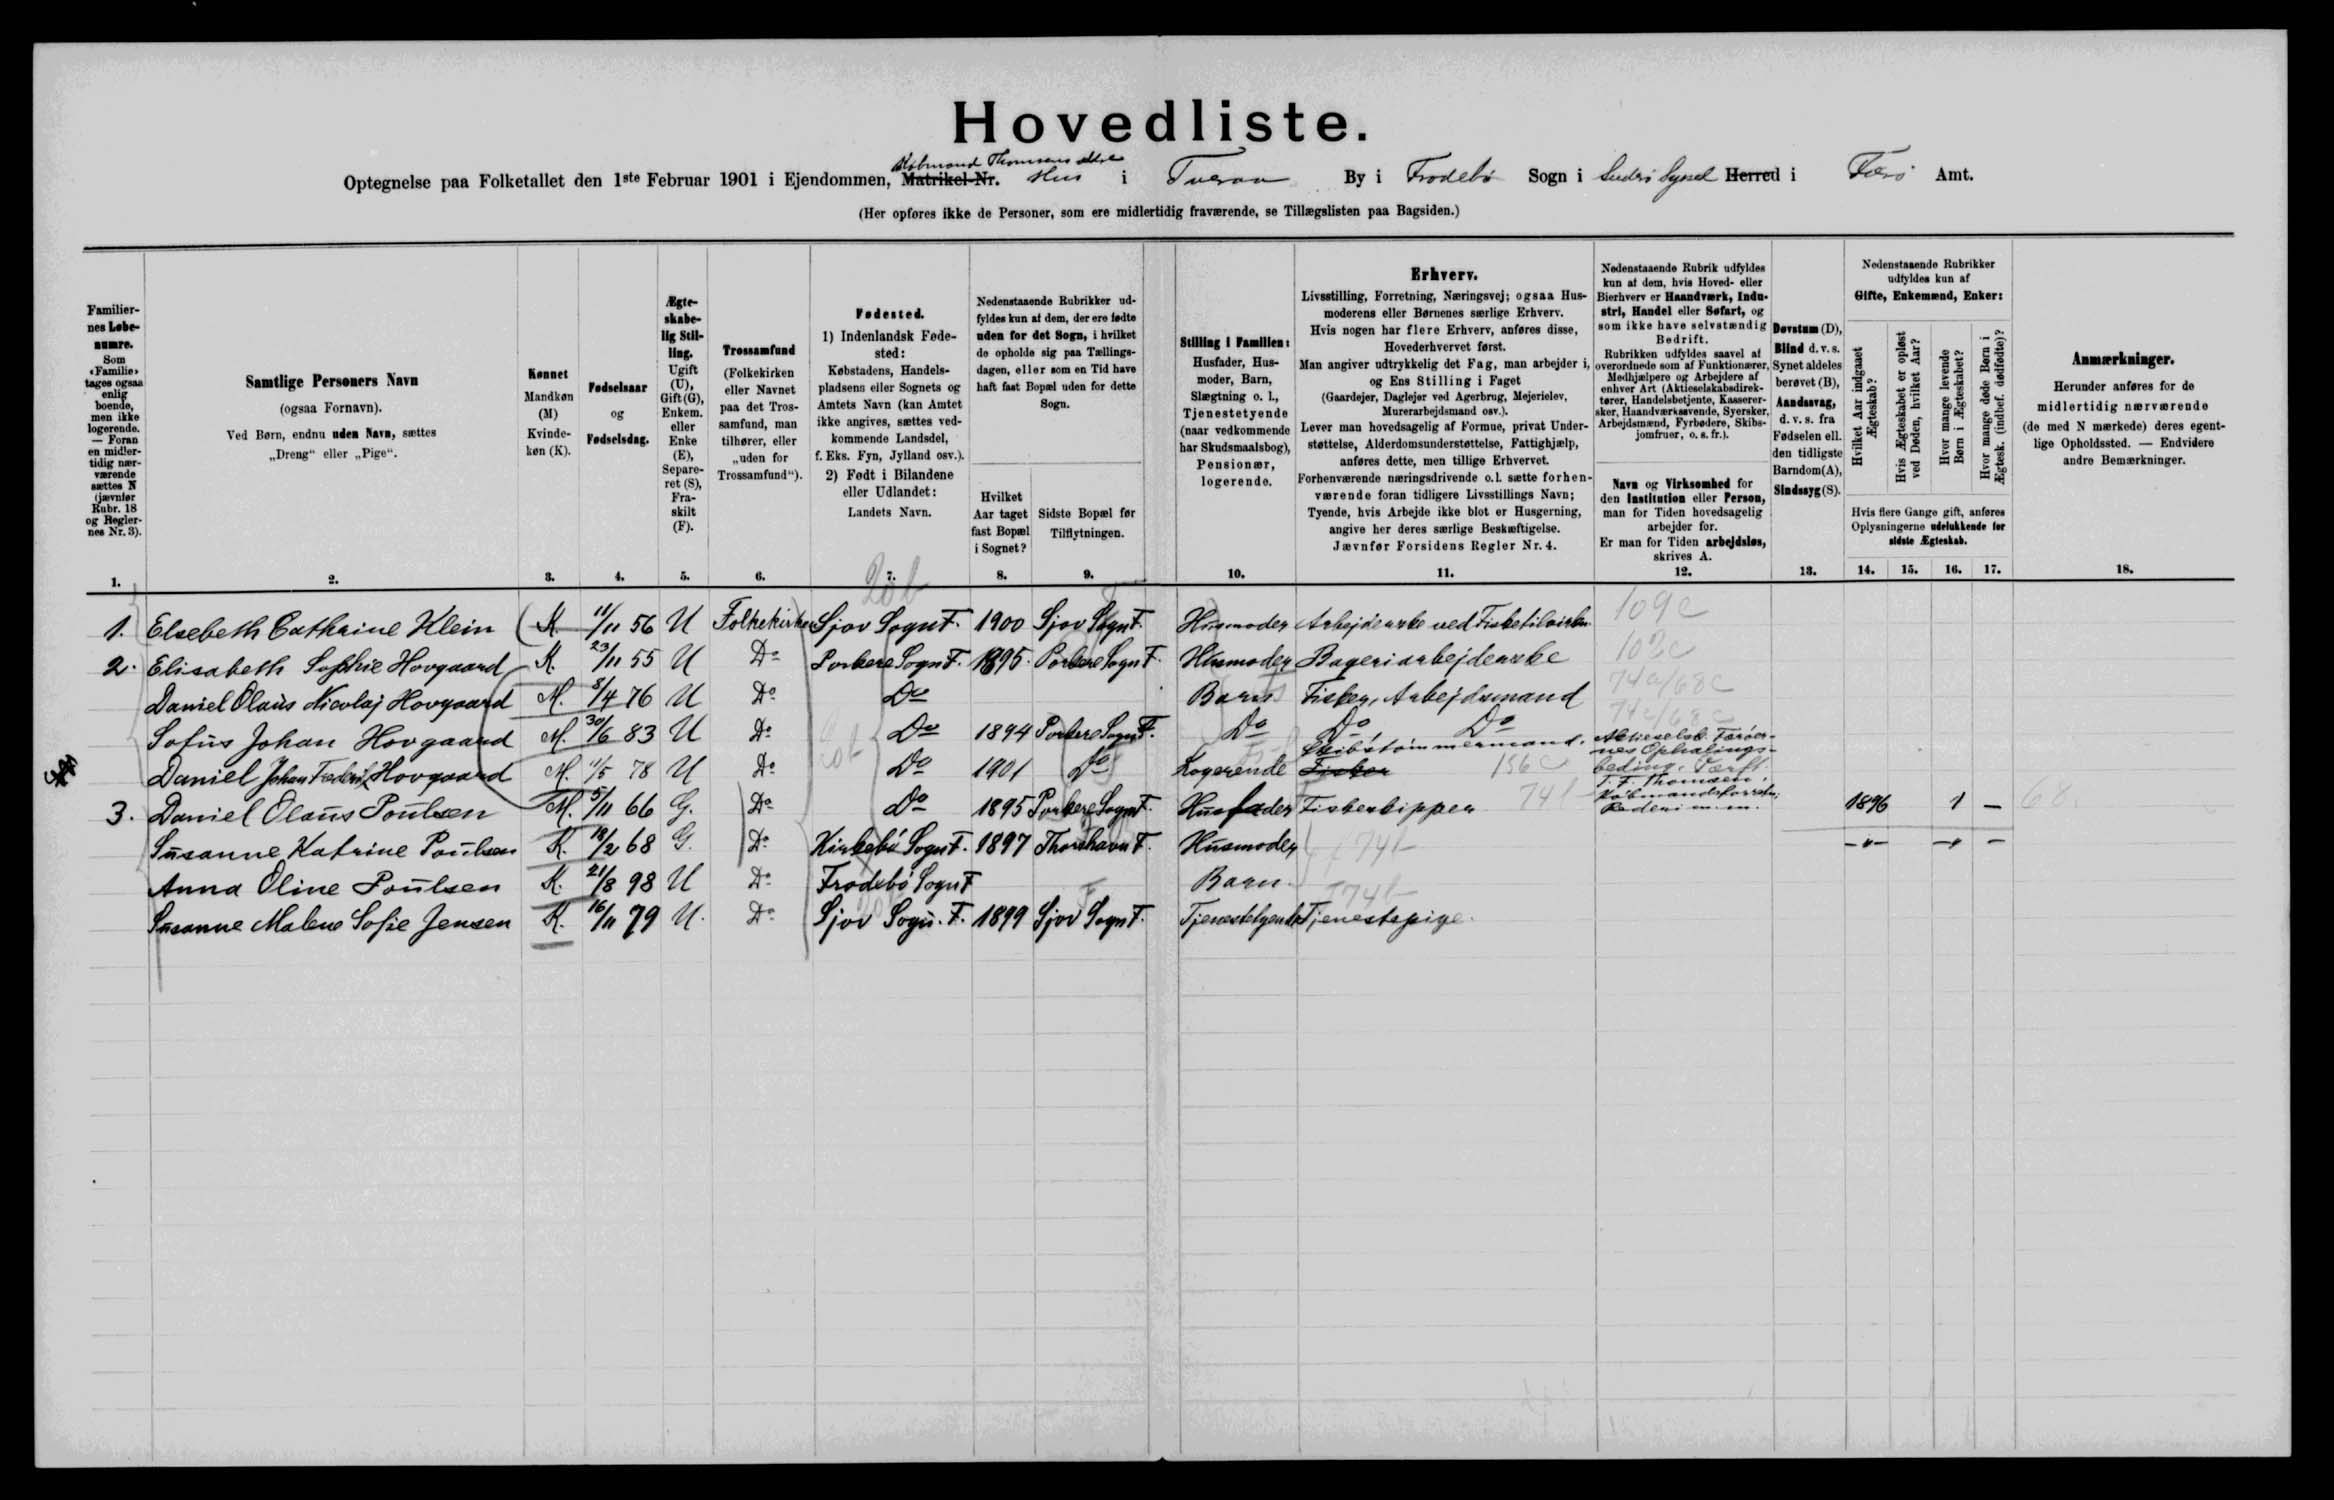 Hovedliste.
Købmand Thomsens ældre
Optegnelse paa Folketallet den 1ste Februar 1901 i Ejendommen, Matrikel-Nr. Hus i Tveraa By i Frodebø Sogn i Suderø Syssel Herred i Færø Amt.
(Her opføres ikke de Personer, som ere midlertidig fraværende, se Tillægslisten paa Bagsiden.)
Familier-
nes Løbe-
numre.
Som
«Familie»
tages ogsaa
enlig
boende,
men ikke
logerende.
— Foran
en midler-
tidig nær-
værende
sættes N
(jævnfør
Rubr. 18
og Regler-
nes Nr. 3).
1.
Samtlige Personers Navn
(ogsaa Fornavn).
Ved Børn, endnu uden Navn, sættes
„Dreng" eller „Pige".
2.
Kønnet
Mandkøn
(M)
Kvinde-
køn (K).
3.
Fødselsaar
og
Fødselsdag.
4.
Ægte-
skabe-
lig Stil-
ling.
Ugift
(U),
Gift (G),
Enkem.
eller
Enke
(E),
Separe-
ret (S),
Fra-
skilt
(F).
5.
Trossamfund
(Folkekirken
eller Navnet
paa det Tros-
samfund, man
tilhører, eller
„uden for
Trossamfund").
6.
Fødested.
1) Indenlandsk Føde-
sted:
Købstadens, Handels-
pladsens eller Sognets og
Amtets Navn (kan Amtet
ikke angives, sættes ved-
kommende Landsdel,
f. Eks. Fyn, Jylland osv.).
2) Født i Bilandene
eller Udlandet:
Landets Navn.
7.
Nedenstaaende Rubrikker ud-
fyldes kun af dem, der ere fødte
uden for det Sogn, i hvilket
de opholde sig paa Tællings-
dagen, eller som en Tid have
haft fast Bopæl uden for dette
Sogn.
Hvilket
Aar taget
fast Bopæl
i Sognet?
8.
Sidste Bopæl før
Tilflytningen.
9.
Stilling i Familien:
Husfader, Hus-
moder, Barn,
Slægtning o. l.,
Tjenestetyende
(naar vedkommende
har Skudsmaalsbog),
Pensionær,
logerende.
10.
Erhverv.
Livsstilling, Forretning, Næringsvej; ogsaa Hus-
moderens eller Børnenes særlige Erhverv.
Hvis nogen har flere Erhverv, anføres disse,
Hovederhvervet først.
Man angiver udtrykkelig det Fag, man arbejder i,
og Ens Stilling i Faget
(Gaardejer, Daglejer ved Agerbrug, Mejerielev,
Murerarbejdsmand osv.).
Lever man hovedsagelig af Formue, privat Under-
støttelse, Alderdomsunderstøttelse, Fattighjælp,
anføres dette, men tillige Erhvervet.
Forhenværende næringsdrivende o.l. sætte forhen-
værende foran tidligere Livsstillings Navn;
Tyende, hvis Arbejde ikke blot er Husgerning,
angive her deres særlige Beskæftigelse.
Jævnfør Forsidens Regler Nr. 4.
11.
Nedenstaaende Rubrik udfyldes
kun af dem, hvis Hoved- eller
Bierhverv er Haandværk, Indu-
stri, Handel eller Søfart, og
som ikke have selvstændig
Bedrift.
Rubrikken udfyldes saavel af
overordnede som af Funktionærer,
Medhjælpere og Arbejdere af
enhver Art (Aktieselskabsdirek-
tører, Handelsbetjente, Kasserer-
sker, Haandværkssvende, Syersker,
Arbejdsmænd, Fyrbødere, Skibs-
jomfruer, o. s. fr.).
Navn og Virksomhed for
den Institution eller Person,
man for Tiden hovedsagelig
arbejder for.
Er man for Tiden arbejdsløs,
skrives A.
12.
Døvstum (D),
Blind d. v. s.
Synet aldeles
berøvet (B),
Aandssvag,
d. v. s. fra
Fødselen ell.
den tidligste
Barndom (A),
Sindssyg (S).
13.
Nedenstaaende Rubrikker
udfyldes kun af
Gifte, Enkemænd, Enker:
Hvilket Aar indgaaet
Ægteskab?
Hvis Ægteskabet er opløst
ved Døden, hvilket Aar?
Hvor mange levende
Børn i Ægteskabet?
Hvor mange døde Børn i
Ægtesk. (indbef. dødfødte)?
Hvis flere Gange gift, anføres
Oplysningerne udelukkende for
sidste Ægteskab.
14. 15. 16. 17.
Anmærkninger.
Herunder anføres for de
midlertidig nærværende
(de med N mærkede) deres egent-
lige Opholdssted. — Endvidere
andre Bemærkninger.
18.
20 b
1. Elsebeth Cathrine Klein K 11/11 56 U Folkekirken Sjov Sogn F. 1900 Sjov Sogn F. Husmoder Arbejderske ved Fisketilvirkn. 109c
2. Elisabeth Sophie Hovgaard K. 23/11 55 U Do Porkere Sogn F. 1895. Porkere Sogn F. Husmoder Bageriarbejderske 103c
Daniel Olaus Nicolaj Hovgaard M. 8/4 76 U Do Do Barn Fisker, Arbejdsmand 74a/68c
Sofus Johan Hovgaard M. 30/6 83 U Do Do 1894 Porkere Sogn F. Do Do Do 74c/68c
Daniel Johan Frederik Hovgaard M. 11/5 78 U Do Do 1901 Do Logerende Skibstømmermand. Fisker 156c Aktieselsk. Færøer-
nes Ophalings-
beding. Værft.
3. Daniel Olaus Poulsen M. 5/11 66 G. Do Do 1895 Porkere Sogn F. Husfader Fiskerskipper 74b T. F. Thomsen,
Købmandsforretn.,
Rederi m. m. 1896 1 — 68.
Susanne Katrine Poulsen K. 18/2 68 G. Do Kirkebø Sogn F. 1897 Thorshavn F. Husmoder 74b -„- -„- —
Anna Oline Poulsen K. 21/8 98 U Do Frodebø Sogn F Barn. 74b
Susanne Malene Sofie Jensen K. 16/11 79 U. Do Sjov Sogn. F. 1899 Sjov Sogn F. Tjenestetyende Tjenestepige.